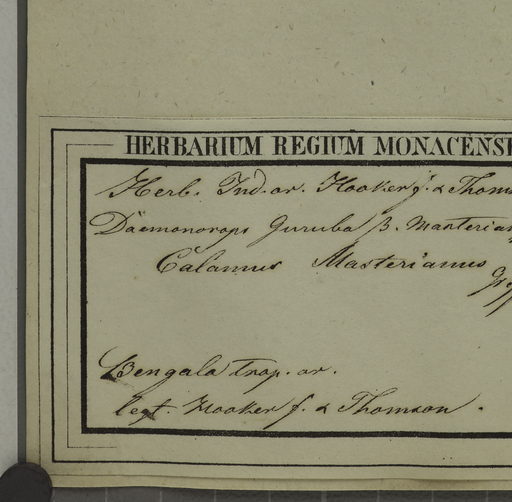 HERBARIUM REGIUM MONACENSE
Herb. Ind. or. Hooker f. & Thoms
Daemonorops Guruba β. Masterian
Calamus Masterianus
Griff
Bengala trop. or.
legt. Hooker f. & Thomson.